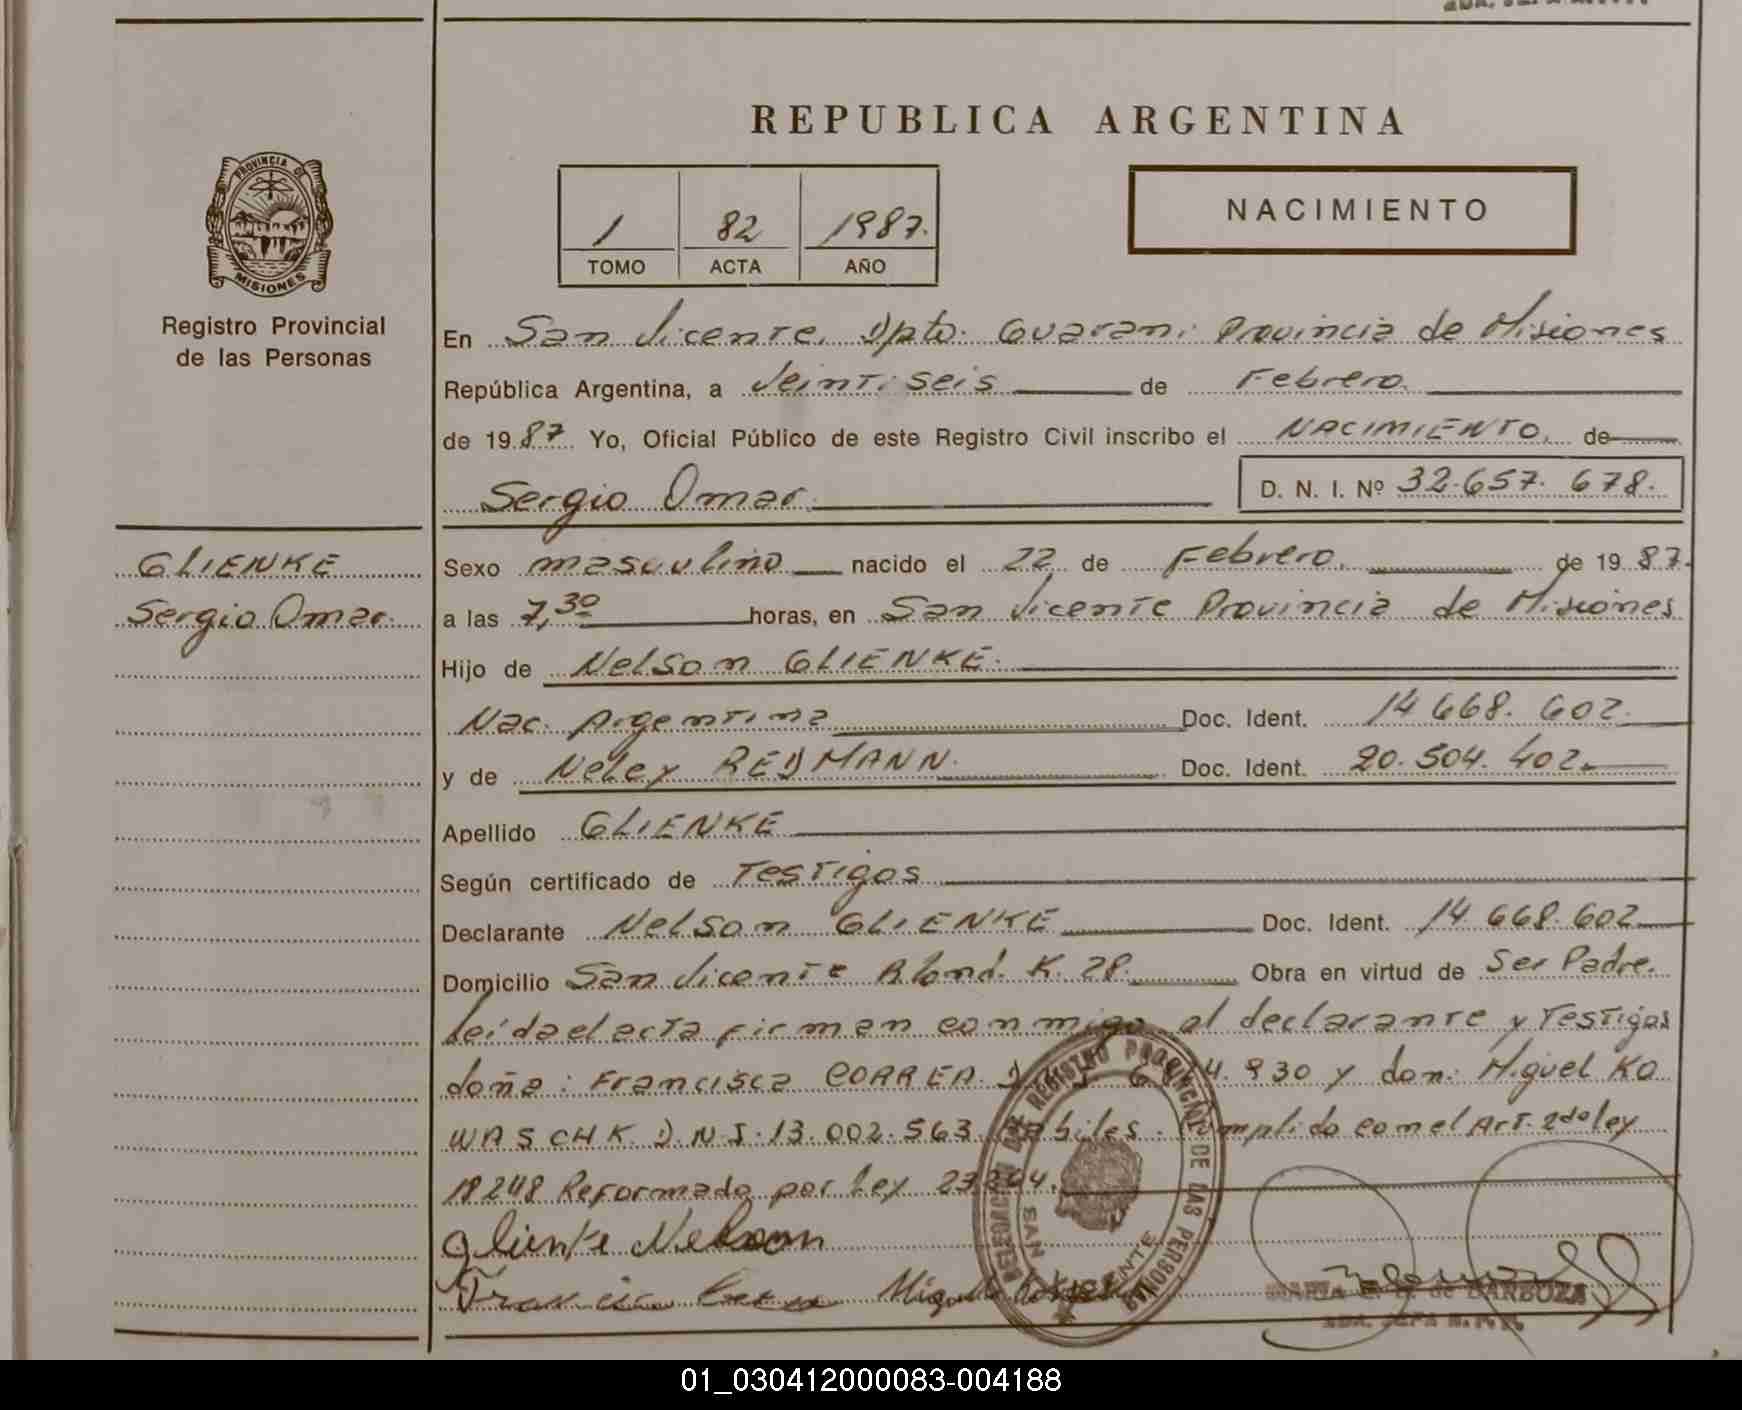 REPUBLICA ARGENTINA
PROVINCIA DE
MISIONES
Registro Provincial
de las Personas
1 82 1987.
TOMO ACTA AÑO
NACIMIENTO
En San Vicente, Dpto. Guarani Provincia de Misiones
República Argentina, a Veintiseis de Febrero.
de 19 87 Yo, Oficial Público de este Registro Civil inscribo el NACIMIENTO, de
Sergio Omar. D. N. I. Nº 32.657.678.
GLIENKE
Sergio Omar.
Sexo masculino nacido el 22 de Febrero. de 19 87.
a las 7,30 horas, en San Vicente Provincia de Misiones
Hijo de Nelson GLIENKE.
Nac. Argentina Doc. Ident. 14.668.602.
y de Neley REDMANN. Doc. Ident. 20.504.402.
Apellido GLIENKE
Según certificado de Testigos
Declarante Nelson GLIENKE Doc. Ident. 14.668.602
Domicilio San Vicente R. Lond. K. 28. Obra en virtud de Ser Padre.
leida el acta firman conmigo el declarante y Testigos
doña: Francisca CORREA. y don: Miguel KO
WASCHK D.N.I. 13.002.563 habiles. Cumplido con el Art. 2 de ley
18248 Reformado por Ley 23264.
Glienke Nelson
DELEGACION DEL REGISTRO PROVINCIAL DE LAS PERSONAS
SAN VICENTE
MARIA de BARBOZA
01_030412000083-004188